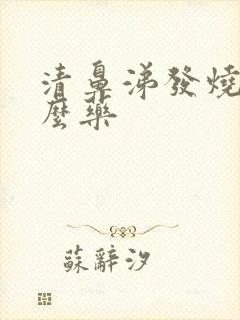 清鼻涕發燒
麼藥
蘇辭汐